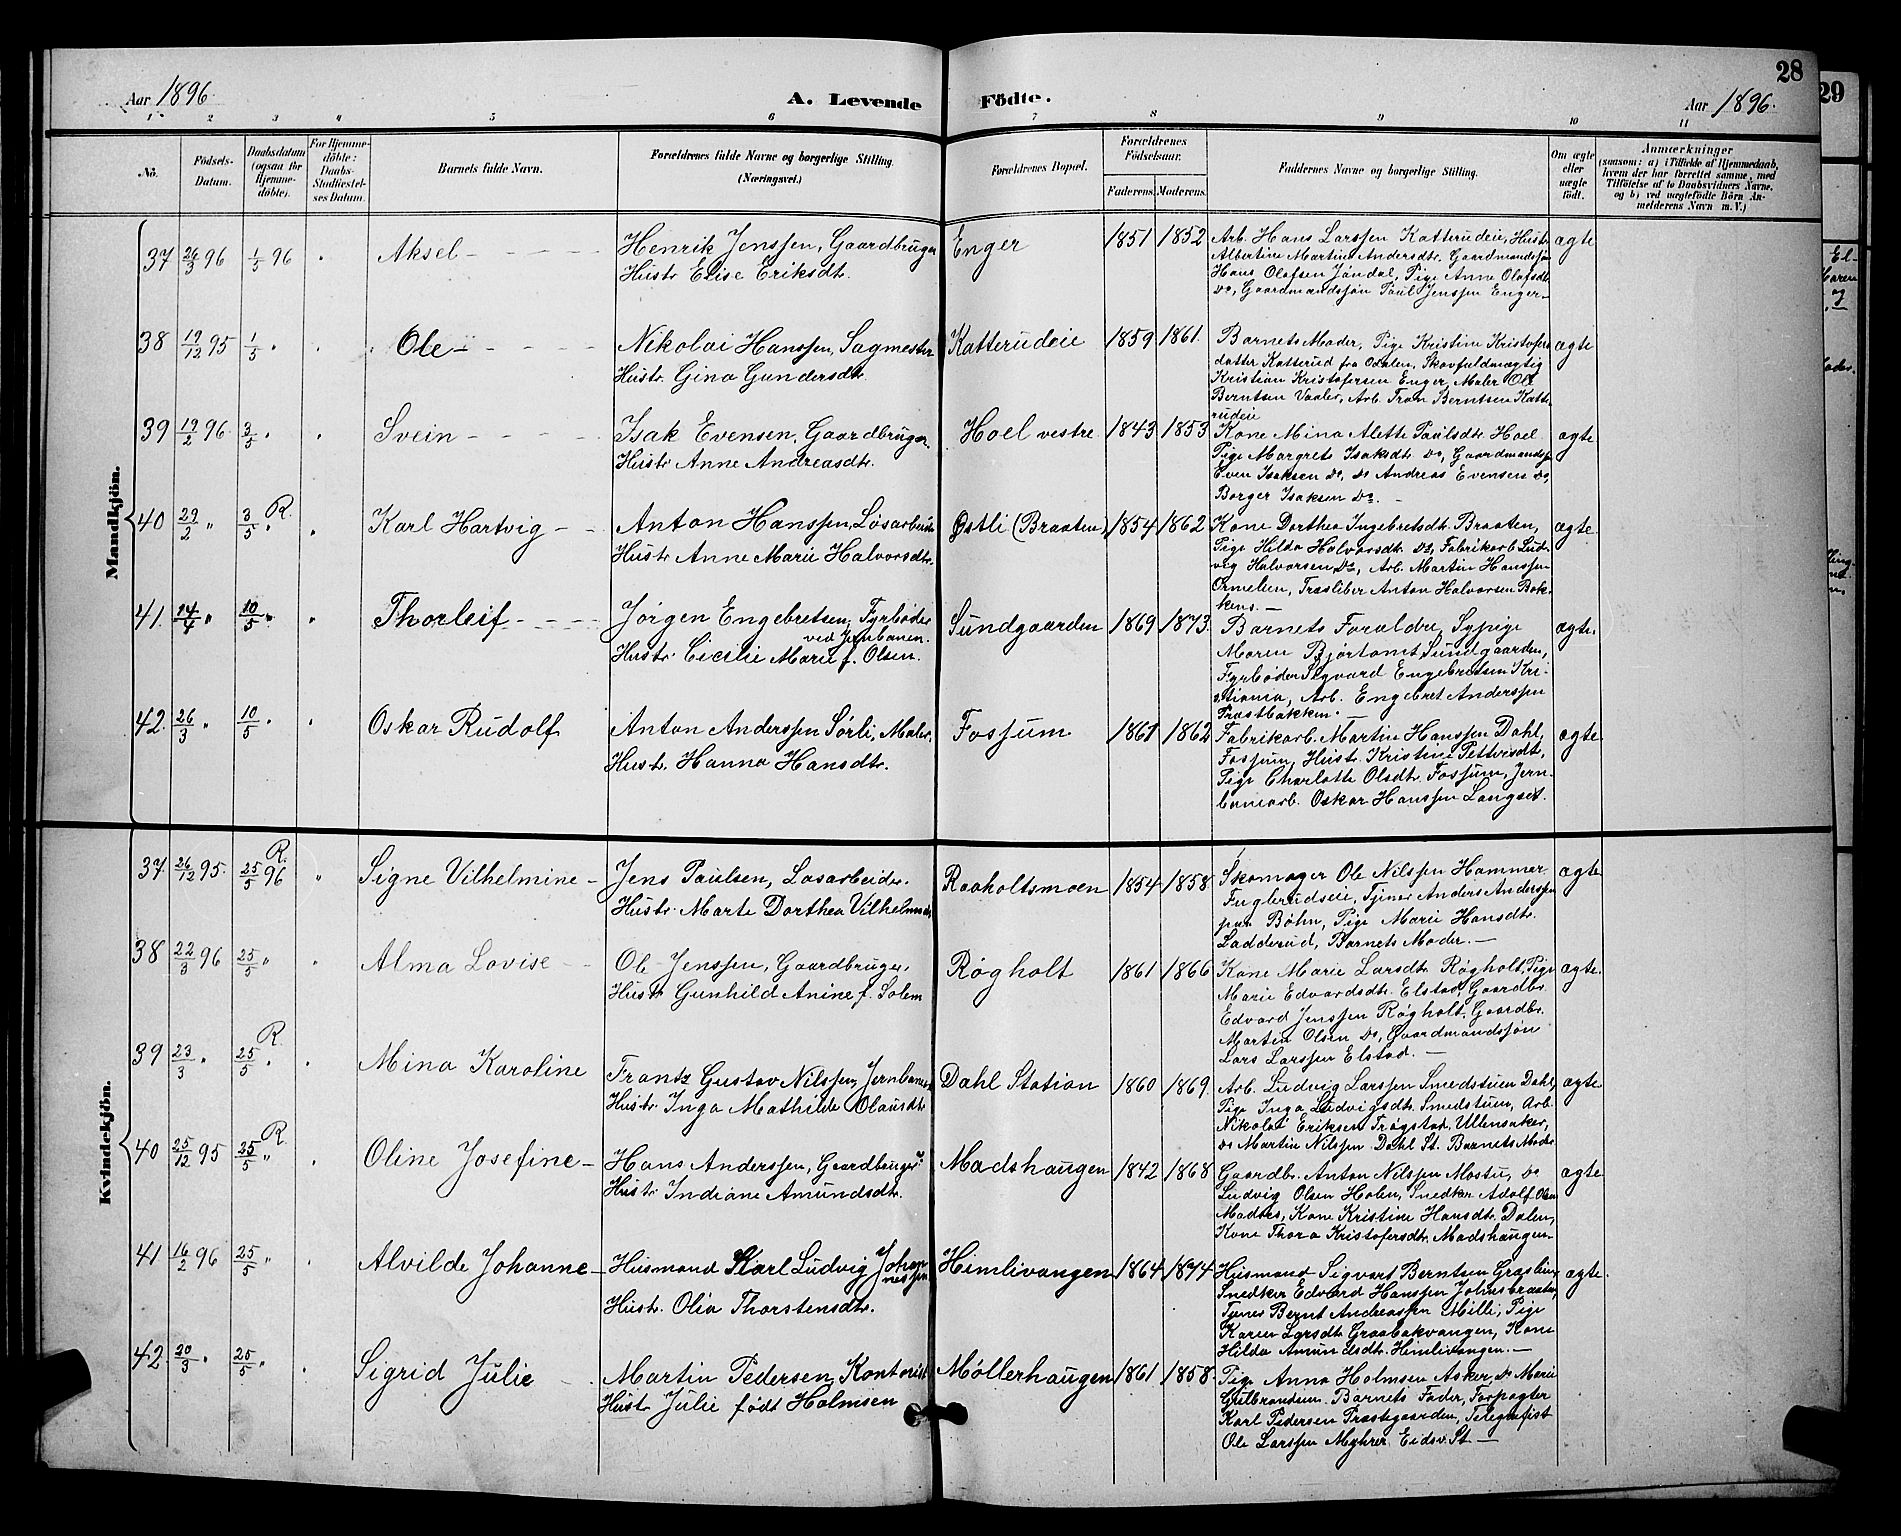 28
29
Aar 1896.
A. Levende Födte.
Aar 1896.
1 2 3 4 5 6 7 8 9 10 11
No.
Födsels-Datum.
Daabsdatum (ogsaa for Hjemmedöbte).
For Hjemmedöbte: Daabs-Stadfæstelses Datum.
Barnets fulde Navn.
Forældrenes fulde Navne og borgerlige Stilling. (Næringsvei.)
Forældrenes Bopæl.
Forældrenes Födselsaar.
Faderens. Moderens.
Faddernes Navne og borgerlige Stilling.
Om ægte eller uægte født.
Anmærkninger
(saasom: a) i Tilfælde af Hjemmedaab, hvem der har forrettet samme, med Tilföielse af to Daabsvidners Navne, og b) ved uægtefödte Börn Anmelderens Navn m. V.)
Mandkjön.
37 26/3 96 1/5 96 Aksel
Henrik Jenssen, Gaardbruger
Hustr. Elise Eriksdt.
Enger 1851 1852
Arb. Hans Larssen Katterudeie, Hustr.
Albertine Martine Andersdtr. Gaardmandssön
Hans Olafsen Jöndal, Pige Anne Olafsdt.
Do, Gaardmandssön Paul Jenssen Enger
ægte
38 19/12 95 1/5 Ole
Nikolai Hanssen, Sagmester
Hustr. Gina Gundersdtr.
Katterudeie 1859 1861.
Barnets Moder, Pige Kristine Kristofers
datter Katterud fra Odalen, Skovfuldmægtig
Kristian Kristofersen Enger, Maler Ole
Berntsen Vaaler, Arb. Tron Berntsen Katte-
rudeie
ægte
39 19/2 96. 3/5 Svein
Isak Evensen, Gaardbruger
Hustr. Anne Andreasdtr.
Hoel vestre. 1843 1853
Kone Mina Alette Paulsdtr. Hoel
Pige Margrete Isaksdt. Do, Gaardmandss.
Even Isaksen Do, Do Andreas Evensen Do
Borger Isaksen Do.
ægte
40 29/2 " 3/5 R. Karl Hartvig
Anton Hanssen, Løsarbeider
Hustr. Anne Marie Halvorsdtr.
Østli (Braaten) 1854 1862
Kone Dorthea Ingebretsdtr. Braaten,
Pige Hilda Halvorsdt. Do, Fabrikarb. Lud-
vig Halvorsen Do, Arb. Martin Hanssen
Ormelien, Træsliber Anton Halvorsen Bak-
kens.
ægte.
41. 14/4 " 10/5 " Thorleif
Jørgen Engebretsen, Fyrbøder
ved Jernbanen.
Hustr. Cecilie Marie f. Olsen.
Sundgaarden 1869 1873.
Barnets Forældre, Sypige
Maren Bjørtomt Sundgaarden,
Fyrbøder Sigvard Engebretsen Kri-
stiania, Arb. Engebret Anderssen
Præstbakken.
ægte.
42. 26/3 " 10/5 Oskar Rudolf
Anton Anderssen Sørli, Maler.
Hustr. Hanna Hansdtr.
Fossum 1861 1862
Fabrikarb. Martin Hanssen Dahl,
Fossum, Hustr. Kristine Pettersdt,
Pige Charlotte Olsdtr. Fossum, Jern-
banearb. Oskar Hanssen Langset.
ægte
Kvindekjön.
37. 26/12 95. 25/5 96 R. Signe Vilhelmine
Jens Paulsen, Løsarbeider.
Hustr. Marte Dorthea Vilhelmsd.
Raaholtsmoen 1854 1858
Skomager Ole Nilssen Hammer
Fuglerudseie, Tjener Anders Anderssen
paa Böhn, Pige Marie Hansdtr.
Ladderud, Barnets Moder.
ægte
38 22/3 96 25/5 " Alma Lovise
Ole Jenssen, Gaardbruger.
Hustr. Gunhild Anine f. Solem
Røgholt 1861 1866
Kone Marie Larsdtr. Røgholt, Pige
Marie Edvardsdtr. Elstad, Gaardbr.
Edvard Jenssen Røgholt, Gaardbr.
Martin Olsen Do, Gaardmandssøn
Lars Larssen Elstad.
ægte.
39 23/3 " 25/5 R. Mina Karoline
Frantz Gustav Nilssen, Jernbanear
Hustr. Inga Mathilde Olausdtr.
Dahl Station 1860 1869.
Arb. Ludvig Larssen Smedstuen Dahl,
Pige Inga Ludvigsdtr. Smedstuen, Arb.
Nikolai Eriksen Trøgstad, Ullensaker,
Do Martin Nilssen Dahl St. Barnets Moder
ægte
40 25/12 95 25/5 " R. Oline Josefine
Hans Anderssen, Gaardbruger
Hustr. Indiane Amundsdtr.
Madshaugen 1842 1868
Gaardbr. Anton Nilssen Mostu, Do
Ludvig Olsen Holen, Snedker Adolf Olsen
Madses, Kone Kristine Hansdtr. Dalen,
Kone Thora Kristofersdtr. Madshaugen
ægte
41 16/2 96 25/5 " Alvilde Johanne
Husmand Karl Ludvig Johan-
nessen
Hustr. Olia Thorstensdtr.
Himlivangen 1864 1874
Husmand Sigvart Berntsen Græslien
Snedker Edvard Hanssen Johnsbraaten,
Tjener Bernt Andreassen Milli, Pige
Karen Larsdtr. Graabakvangen, Kone
Hilda Amundsdtr. Himlivangen.
ægte.
42. 30/3 " 25/5 " Sigrid Julie
Martin Pedersen, Kontorist
Hustr. Julie født Holmsen
Møllerhaugen 1861 1858.
Pige Anna Holmsen Asker, Do Marie
Gulbrandsen. Barnets Fader, Forpagter
Karl Pedersen Præstegaarden, Telegrafist
Ole Larssen Myhrer, Eidsv. St.